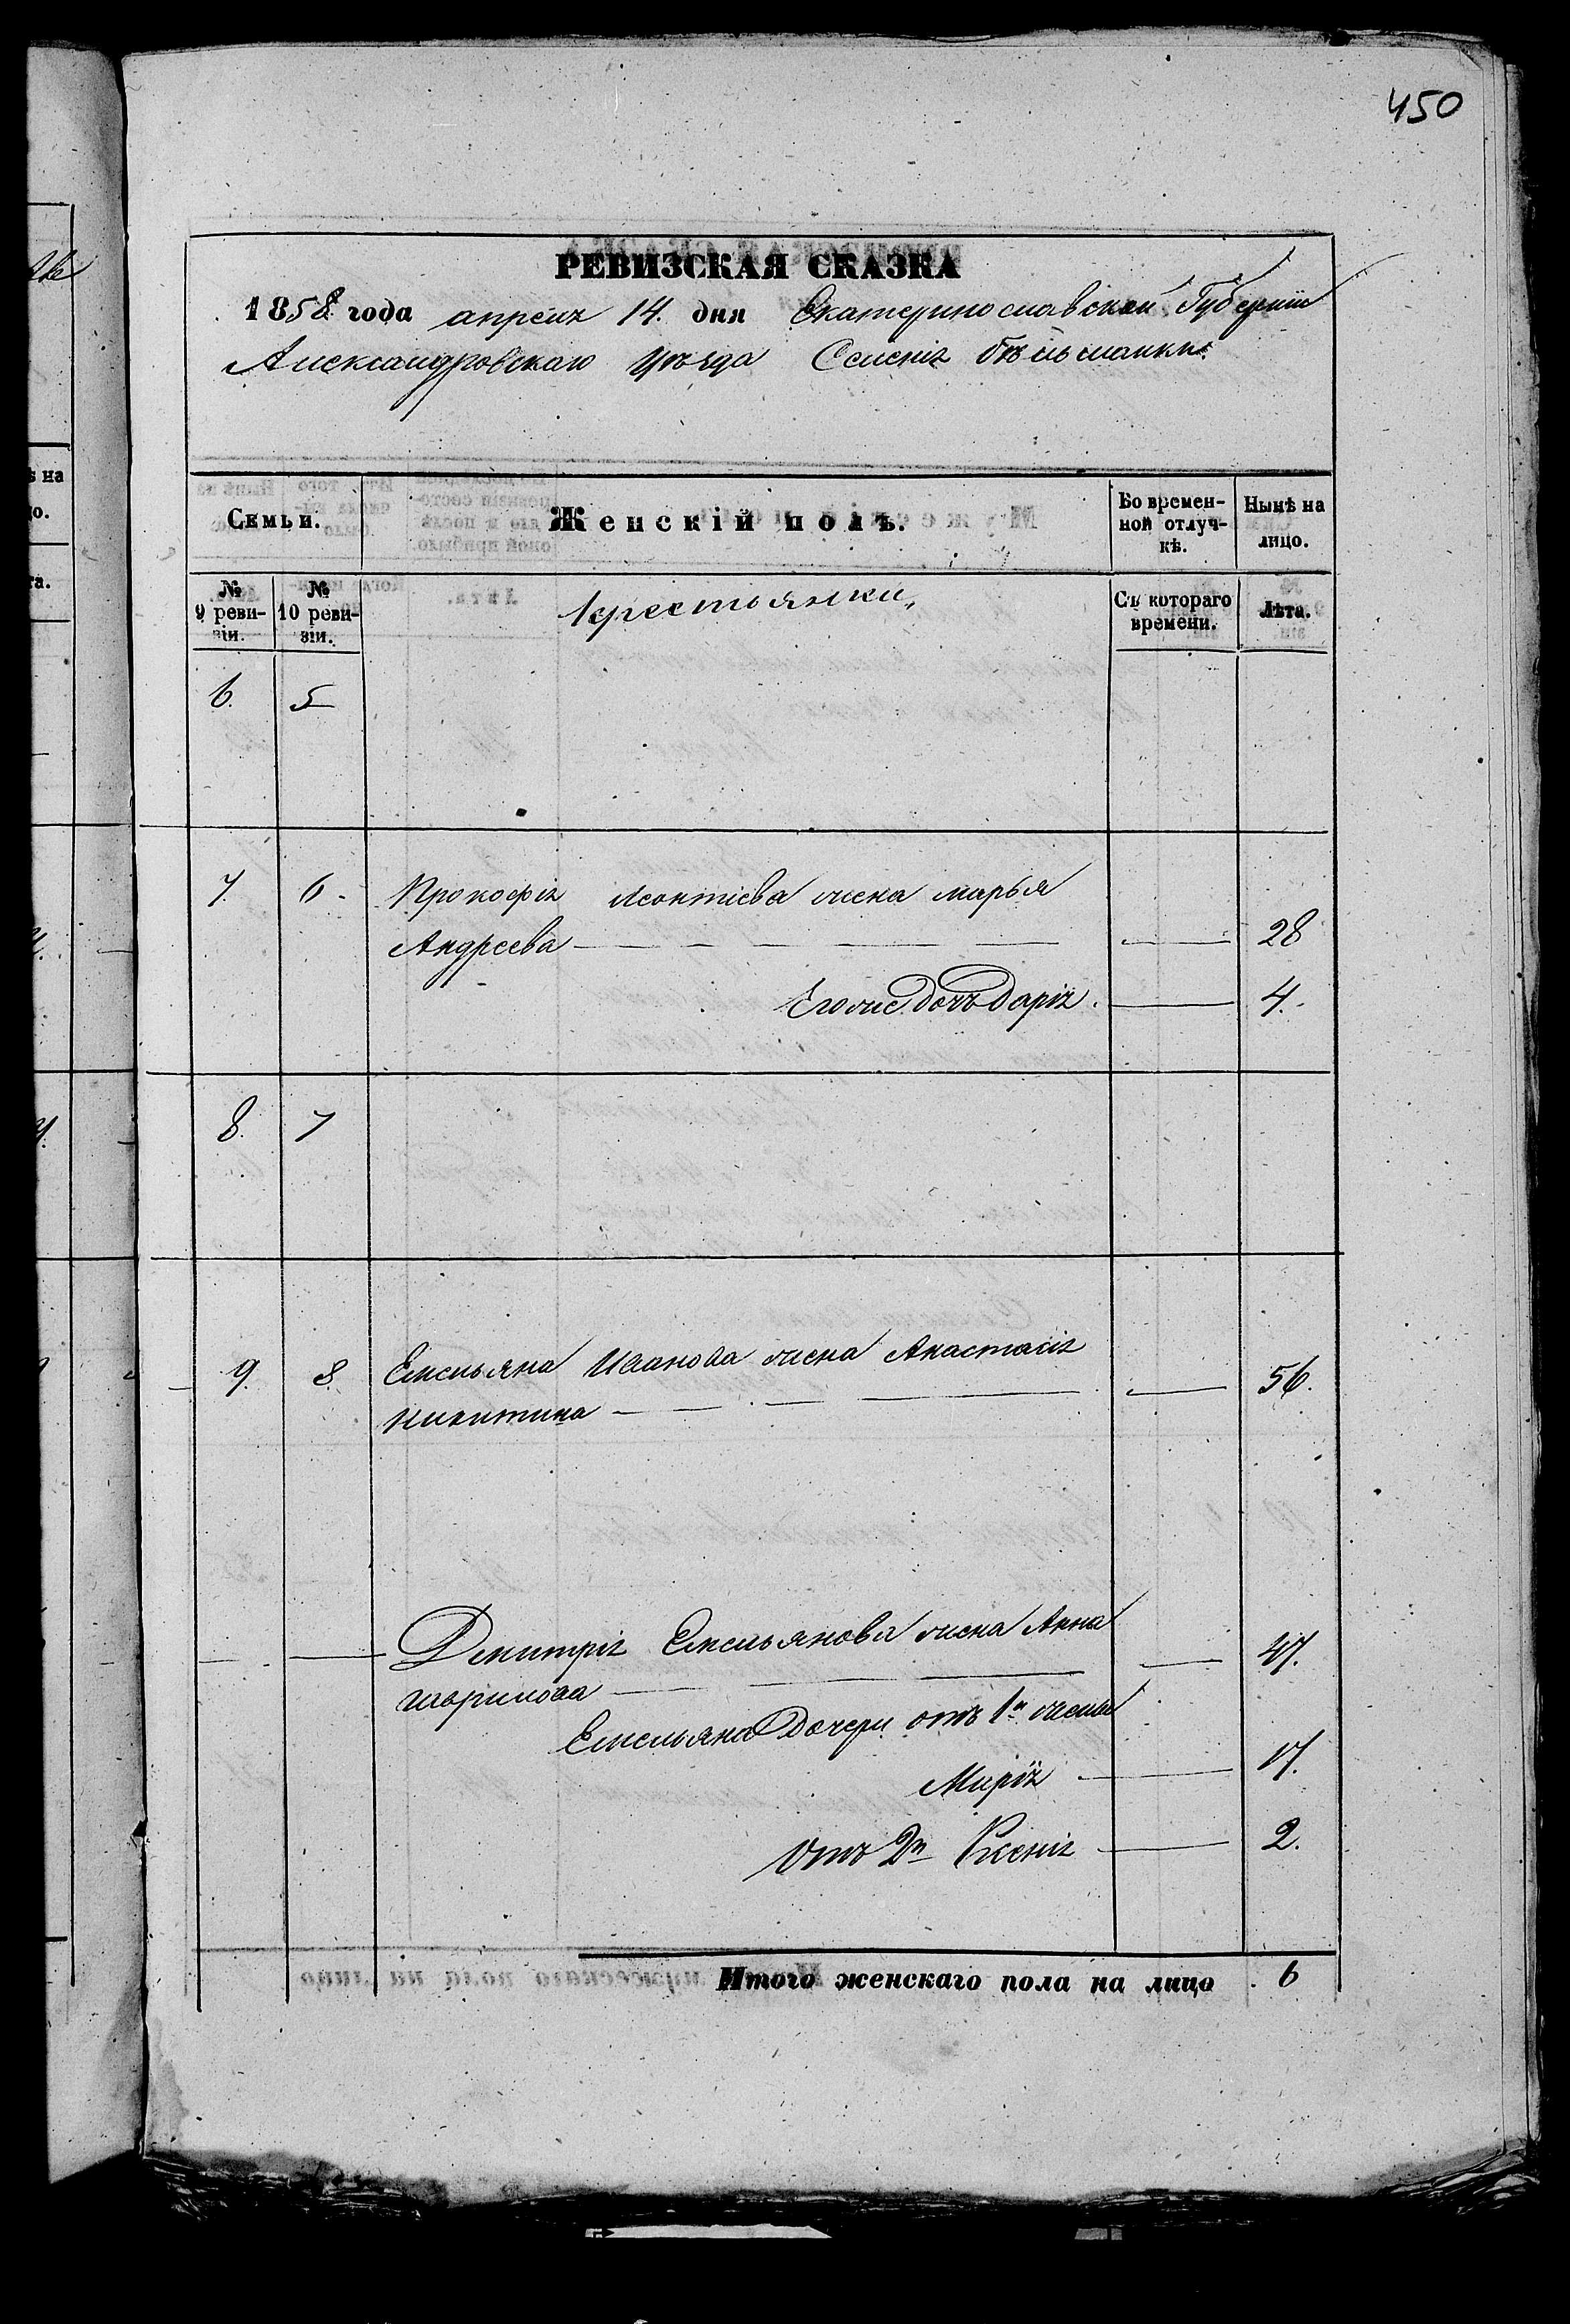 450
РЕВИЗСКАЯ СКАЗКА
1858 года апреля 14. дня Екатеринославской Губерніи
Александровскаго Уѣзда Селенія Бѣльманки
Семьи.
Женскій полъ.
Во времен-
ной отлуч-
кѣ.
Нынѣ на
лицо.
№
9 реви-
зіи.
№
10 реви-
зіи.
Крестьянки,
Съ котораго
времени.
Лѣта.
6. 5
7. 6 Прокофія Леонтіева жена Марья
Андреева 28
Его же дочь Дарія 4.
8. 7
9. 8. Емельяна Иванова жена Анастасія
Никитина 56.
Дмитрія Емельянова жена Анна
Гаврилова 47.
Емельяна Дочери отъ 1й жены
Марія 17.
Отъ 2й Ксенія 2.
Итого женскаго пола на лицо 6